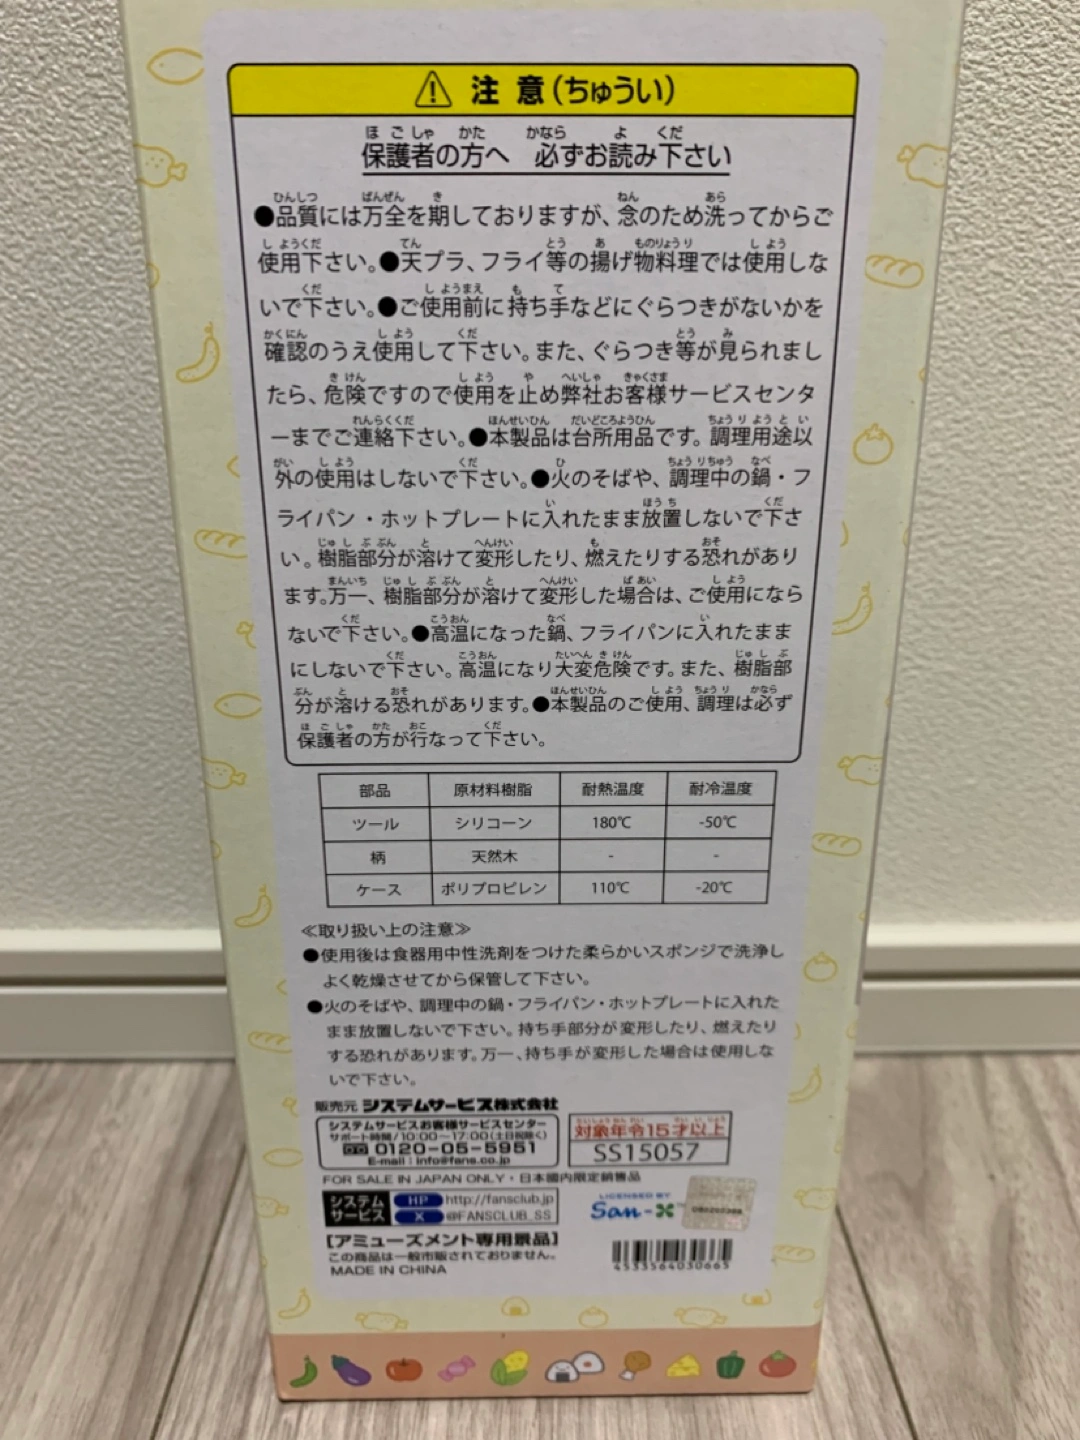 注意(ちゅうい)
保護者の方へ 必ずお読み下さい
●品質には万全を期しておりますが、念のため洗ってからご
使用下さい。●天プラ、フライ等の揚げ物料理では使用しな
いで下さい。●ご使用前に持ち手などにぐらつきがないかを
確認のうえ使用して下さい。また、ぐらつき等が見られまし
たら、危険ですので使用を止め弊社お客様サービスセンタ
ーまでご連絡下さい。●本製品は台所用品です。調理用途以
外の使用はしないで下さい。●火のそばや、調理中の鍋・フ
ライパン・ホットプレートに入れたまま放置しないで下さ
い。樹脂部分が溶けて変形したり、燃えたりする恐れがあり
ます。万一、樹脂部分が溶けて変形した場合は、ご使用になら
ないで下さい。●高温になった鍋、フライパンに入れたまま
にしないで下さい。高温になり大変危険です。また、樹脂部
分が溶ける恐れがあります。●本製品のご使用、調理は必ず
保護者の方が行なって下さい。
部品 原材料樹脂 耐熱温度 耐冷温度
ツール シリコーン 180℃ -50℃
柄 天然木 - -
ケース ポリプロピレン 110℃ -20℃
≪取り扱い上の注意≫
●使用後は食器用中性洗剤をつけた柔らかいスポンジで洗浄し
よく乾燥させてから保管して下さい。
●火のそばや、調理中の鍋・フライパン・ホットプレートに入れた
まま放置しないで下さい。持ち手部分が変形したり、燃えたり
する恐れがあります。万一、持ち手が変形した場合は使用しな
いで下さい。
販売元 システムサービス株式会社
システムサービスお客様サービスセンター
サポート時間/10:00~17:00(土日祝除く)
0120-05-5951
E-mail : info@fans.co.jp
対象年令15才以上
SS15057
FOR SALE IN JAPAN ONLY・日本國内限定銷售品
システム
サービス
HP http://fansclub.jp
X @FANSCLUB_SS
LICENSED BY
San-X™
[アミューズメント専用景品]
この商品は一般市販されておりません。
MADE IN CHINA
4533564030665